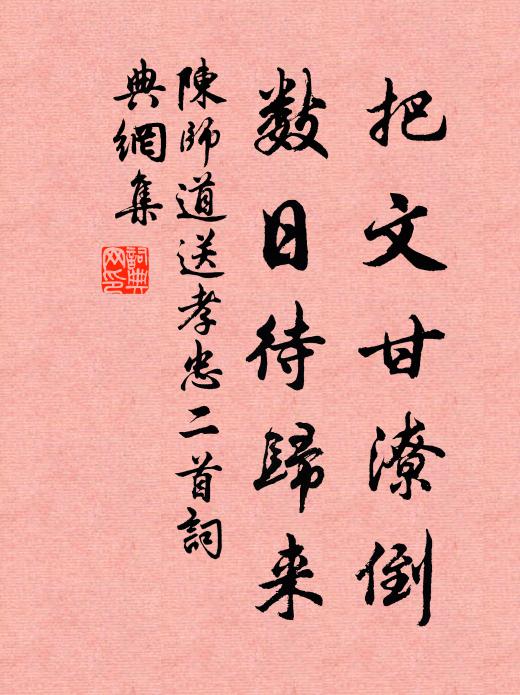 把文甘潦倒
数日待歸来
陳師道送孝忠二首詞
典網集
詞典网印